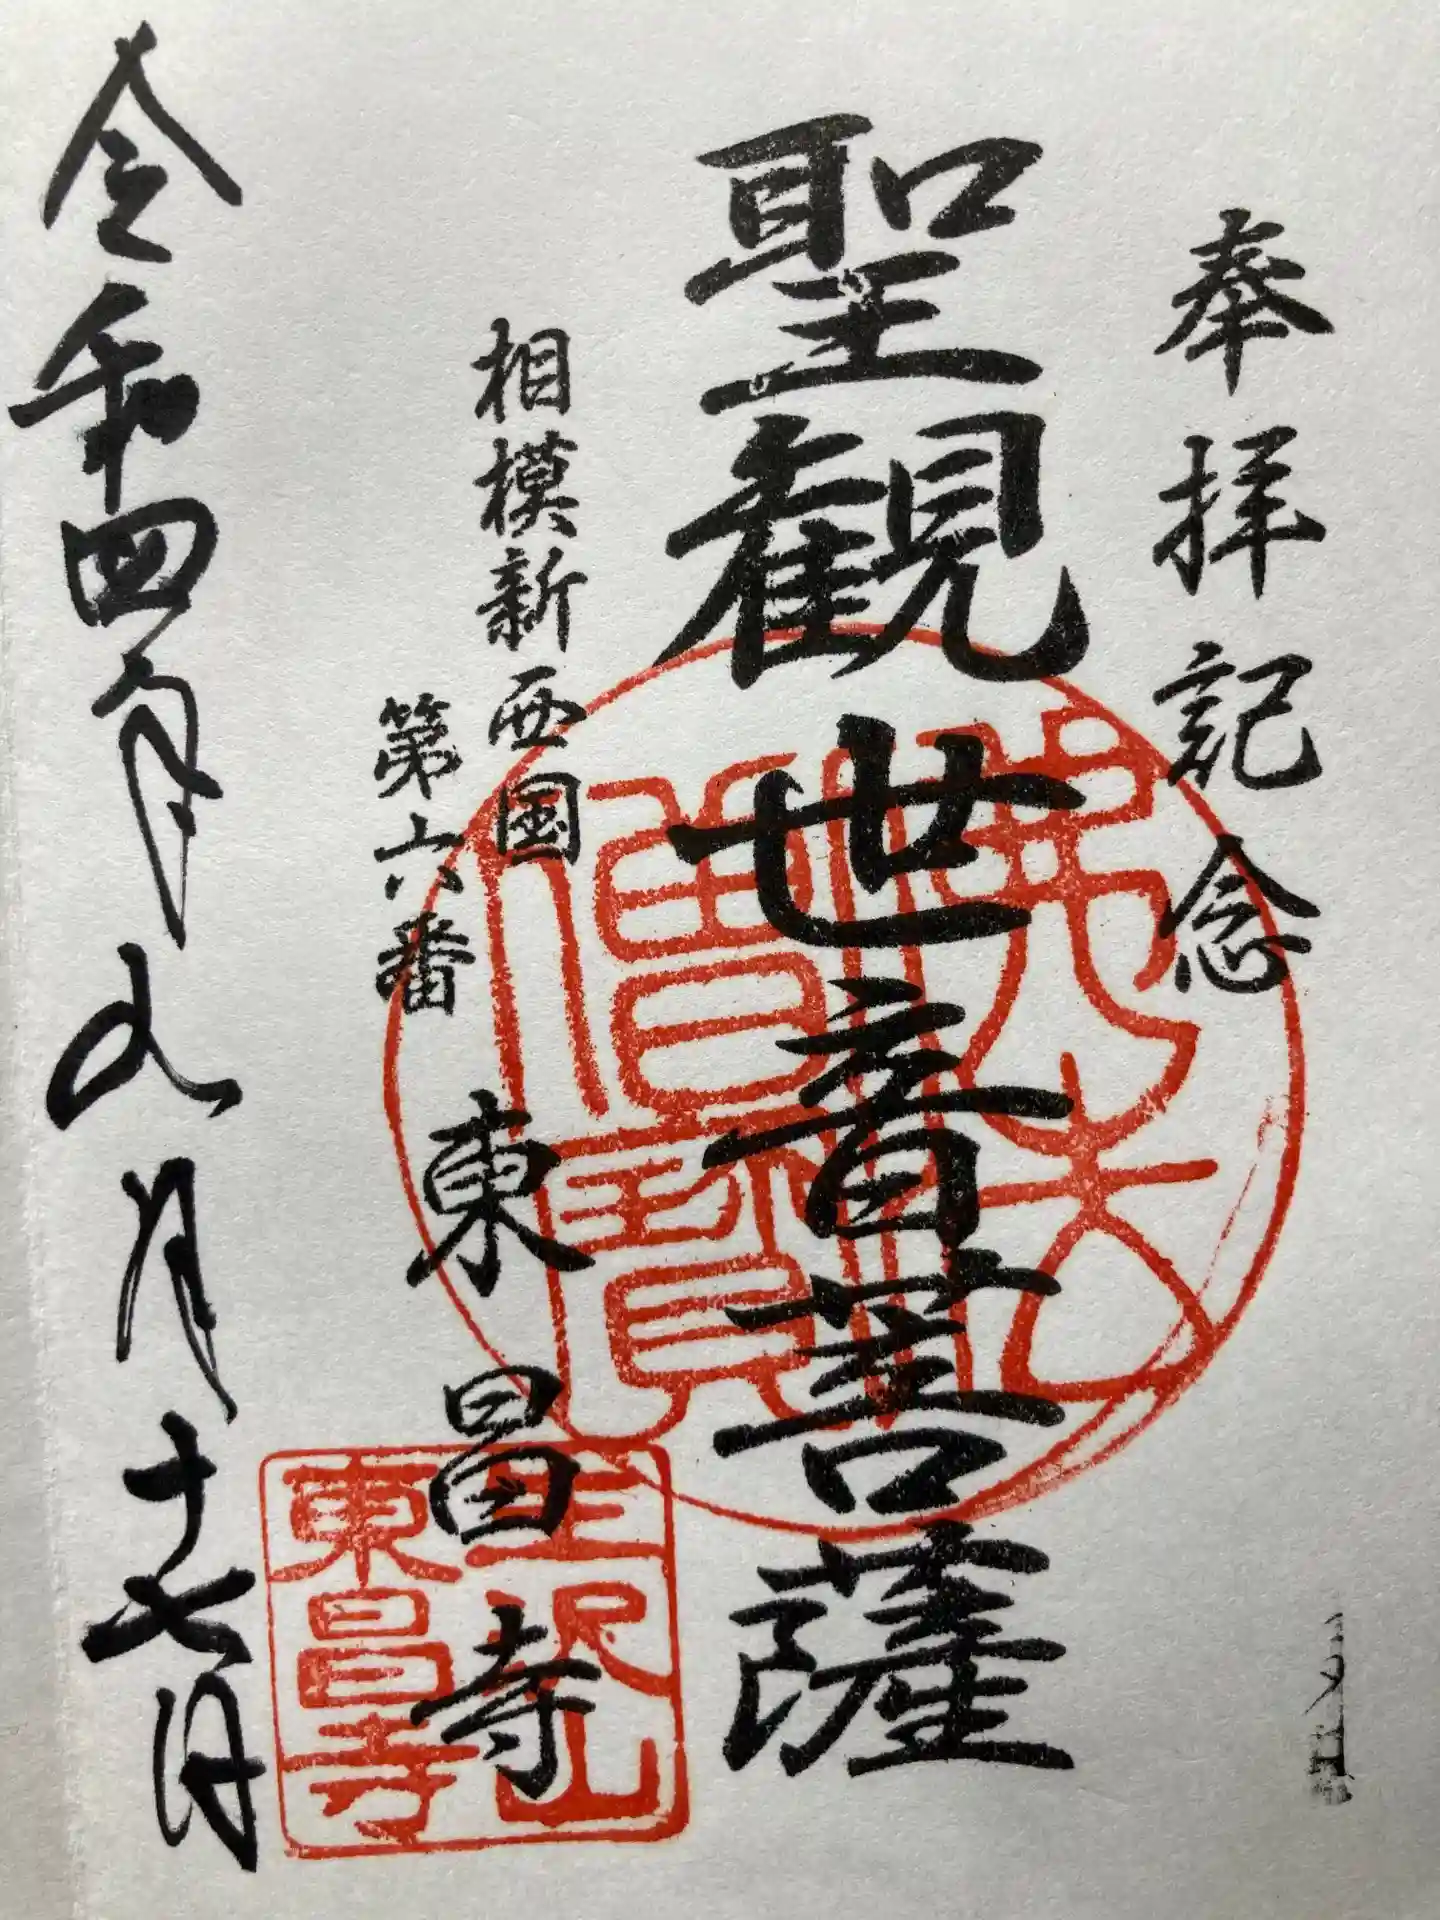 奉拝記念
聖観世音菩薩
相模新西国
第六番
東昌寺
令和四年九月十七日
佛法
僧寶
山
東昌寺